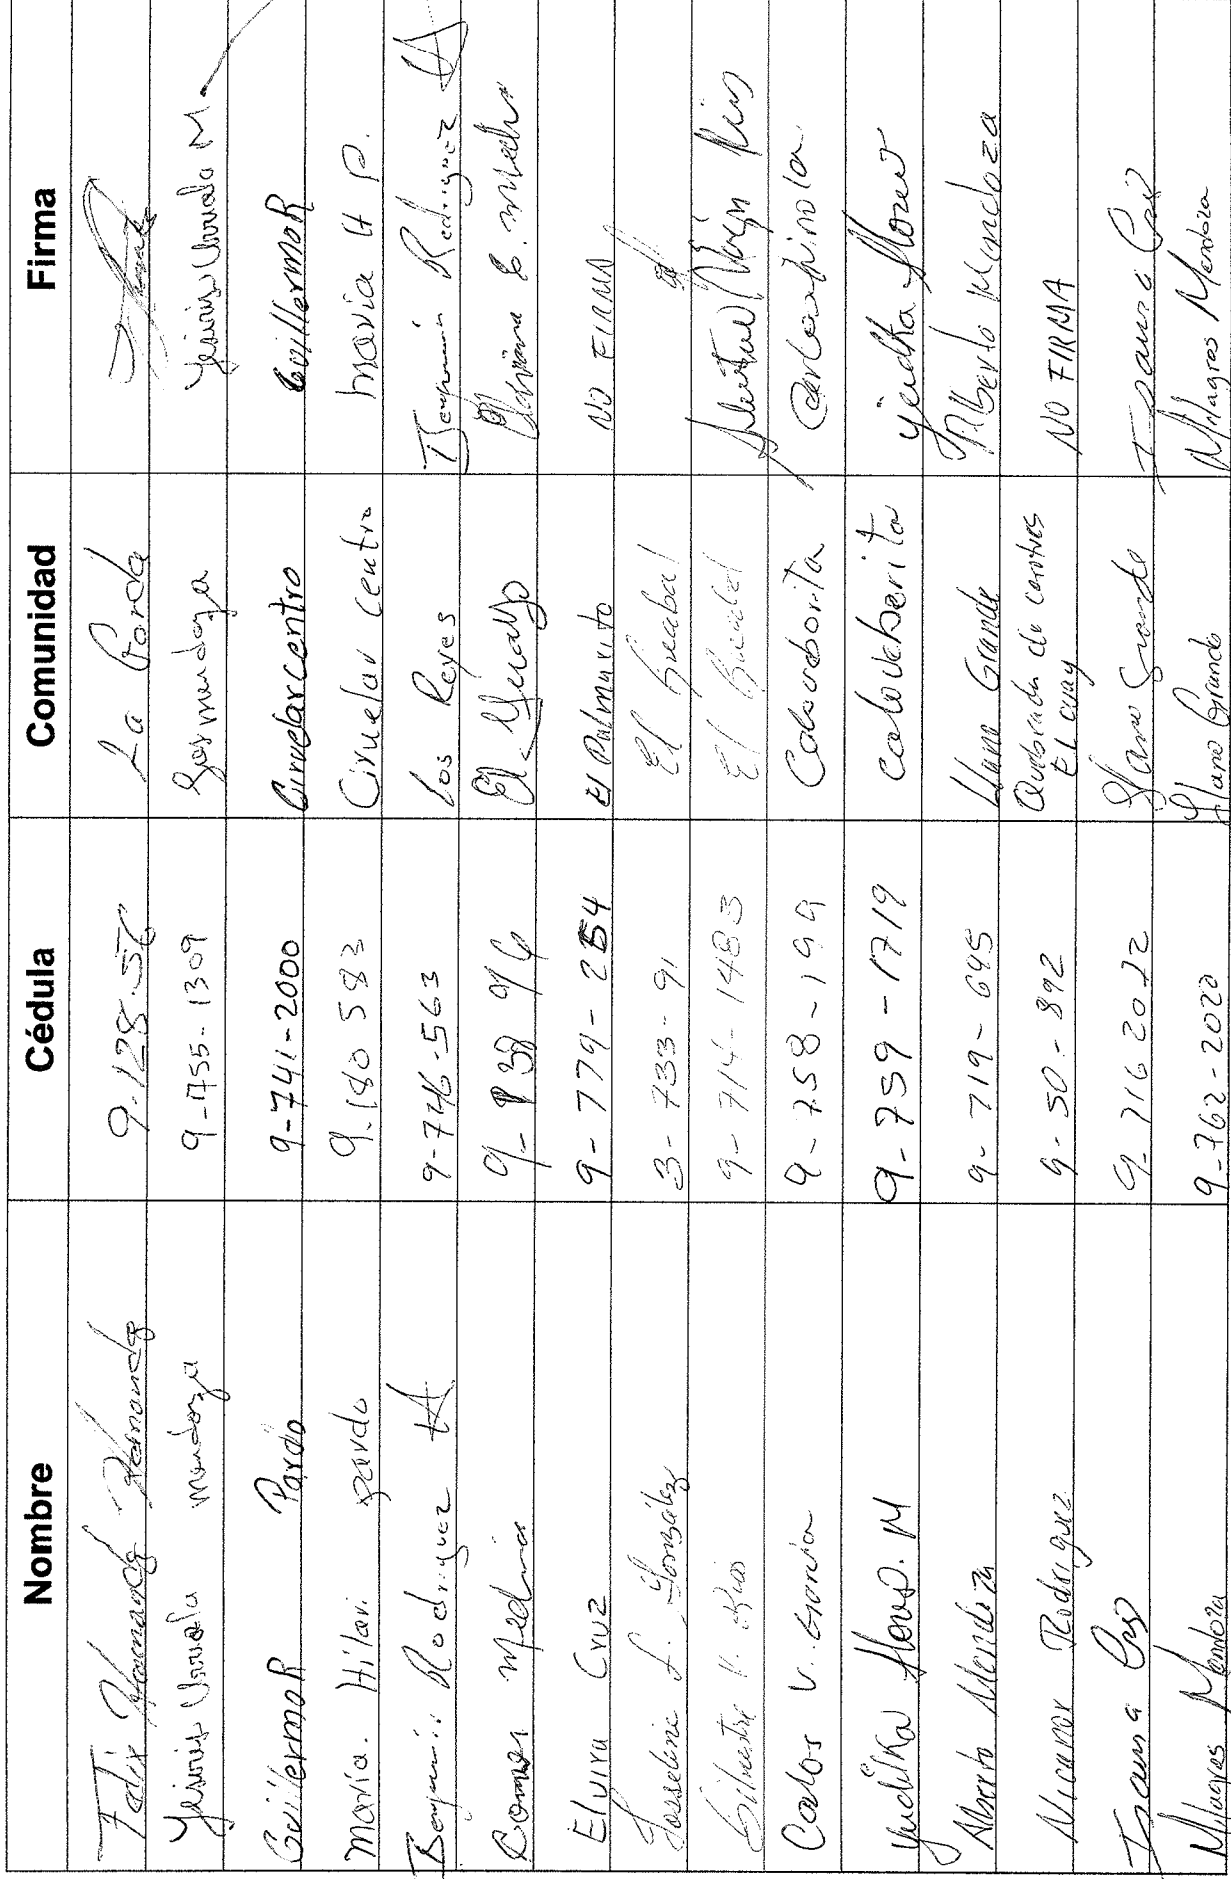 Nombre Cédula Comunidad Firma
Felix Hernandez Hernandez 9-128-56 La Gorda
Yeiniz Urriola mendoza 9-755-1309 Los mendoza Yeiniz Urriola M.
GuillermoR Pardo 9-741-2000 Ciruelarcentro GuillermoR
Maria. Hilari. pardo 9.180 583 Ciruelar centro Maria H P.
Benjamin Rodriguez A 9-746-563 Los Reyes Benjamin Rodriguez A
Medina 9- 38 96 El
Elvira Cruz 9-779-254 El Palmarito NO FIRMA
Josseline L. González 3-733-91 El
Silvestre V. Rios 9-714-1483 El
Carlos V. Garcia 9-758-199 Caloveborita
Yuditka Flores. M 9-759-1719 caloveberita yuditka flores
Alberto Mendoza 9-719-695 Llano Grande Alberto Mendoza
Nicanor Rodriguez 9-50-892 Quebrada de NO FIRMA
El
Isaura Cruz 9-716 2022 Llano Grande Isaura Cruz
Milagros Mendoza 9-762-2020 Llano Grande Milagros Mendoza